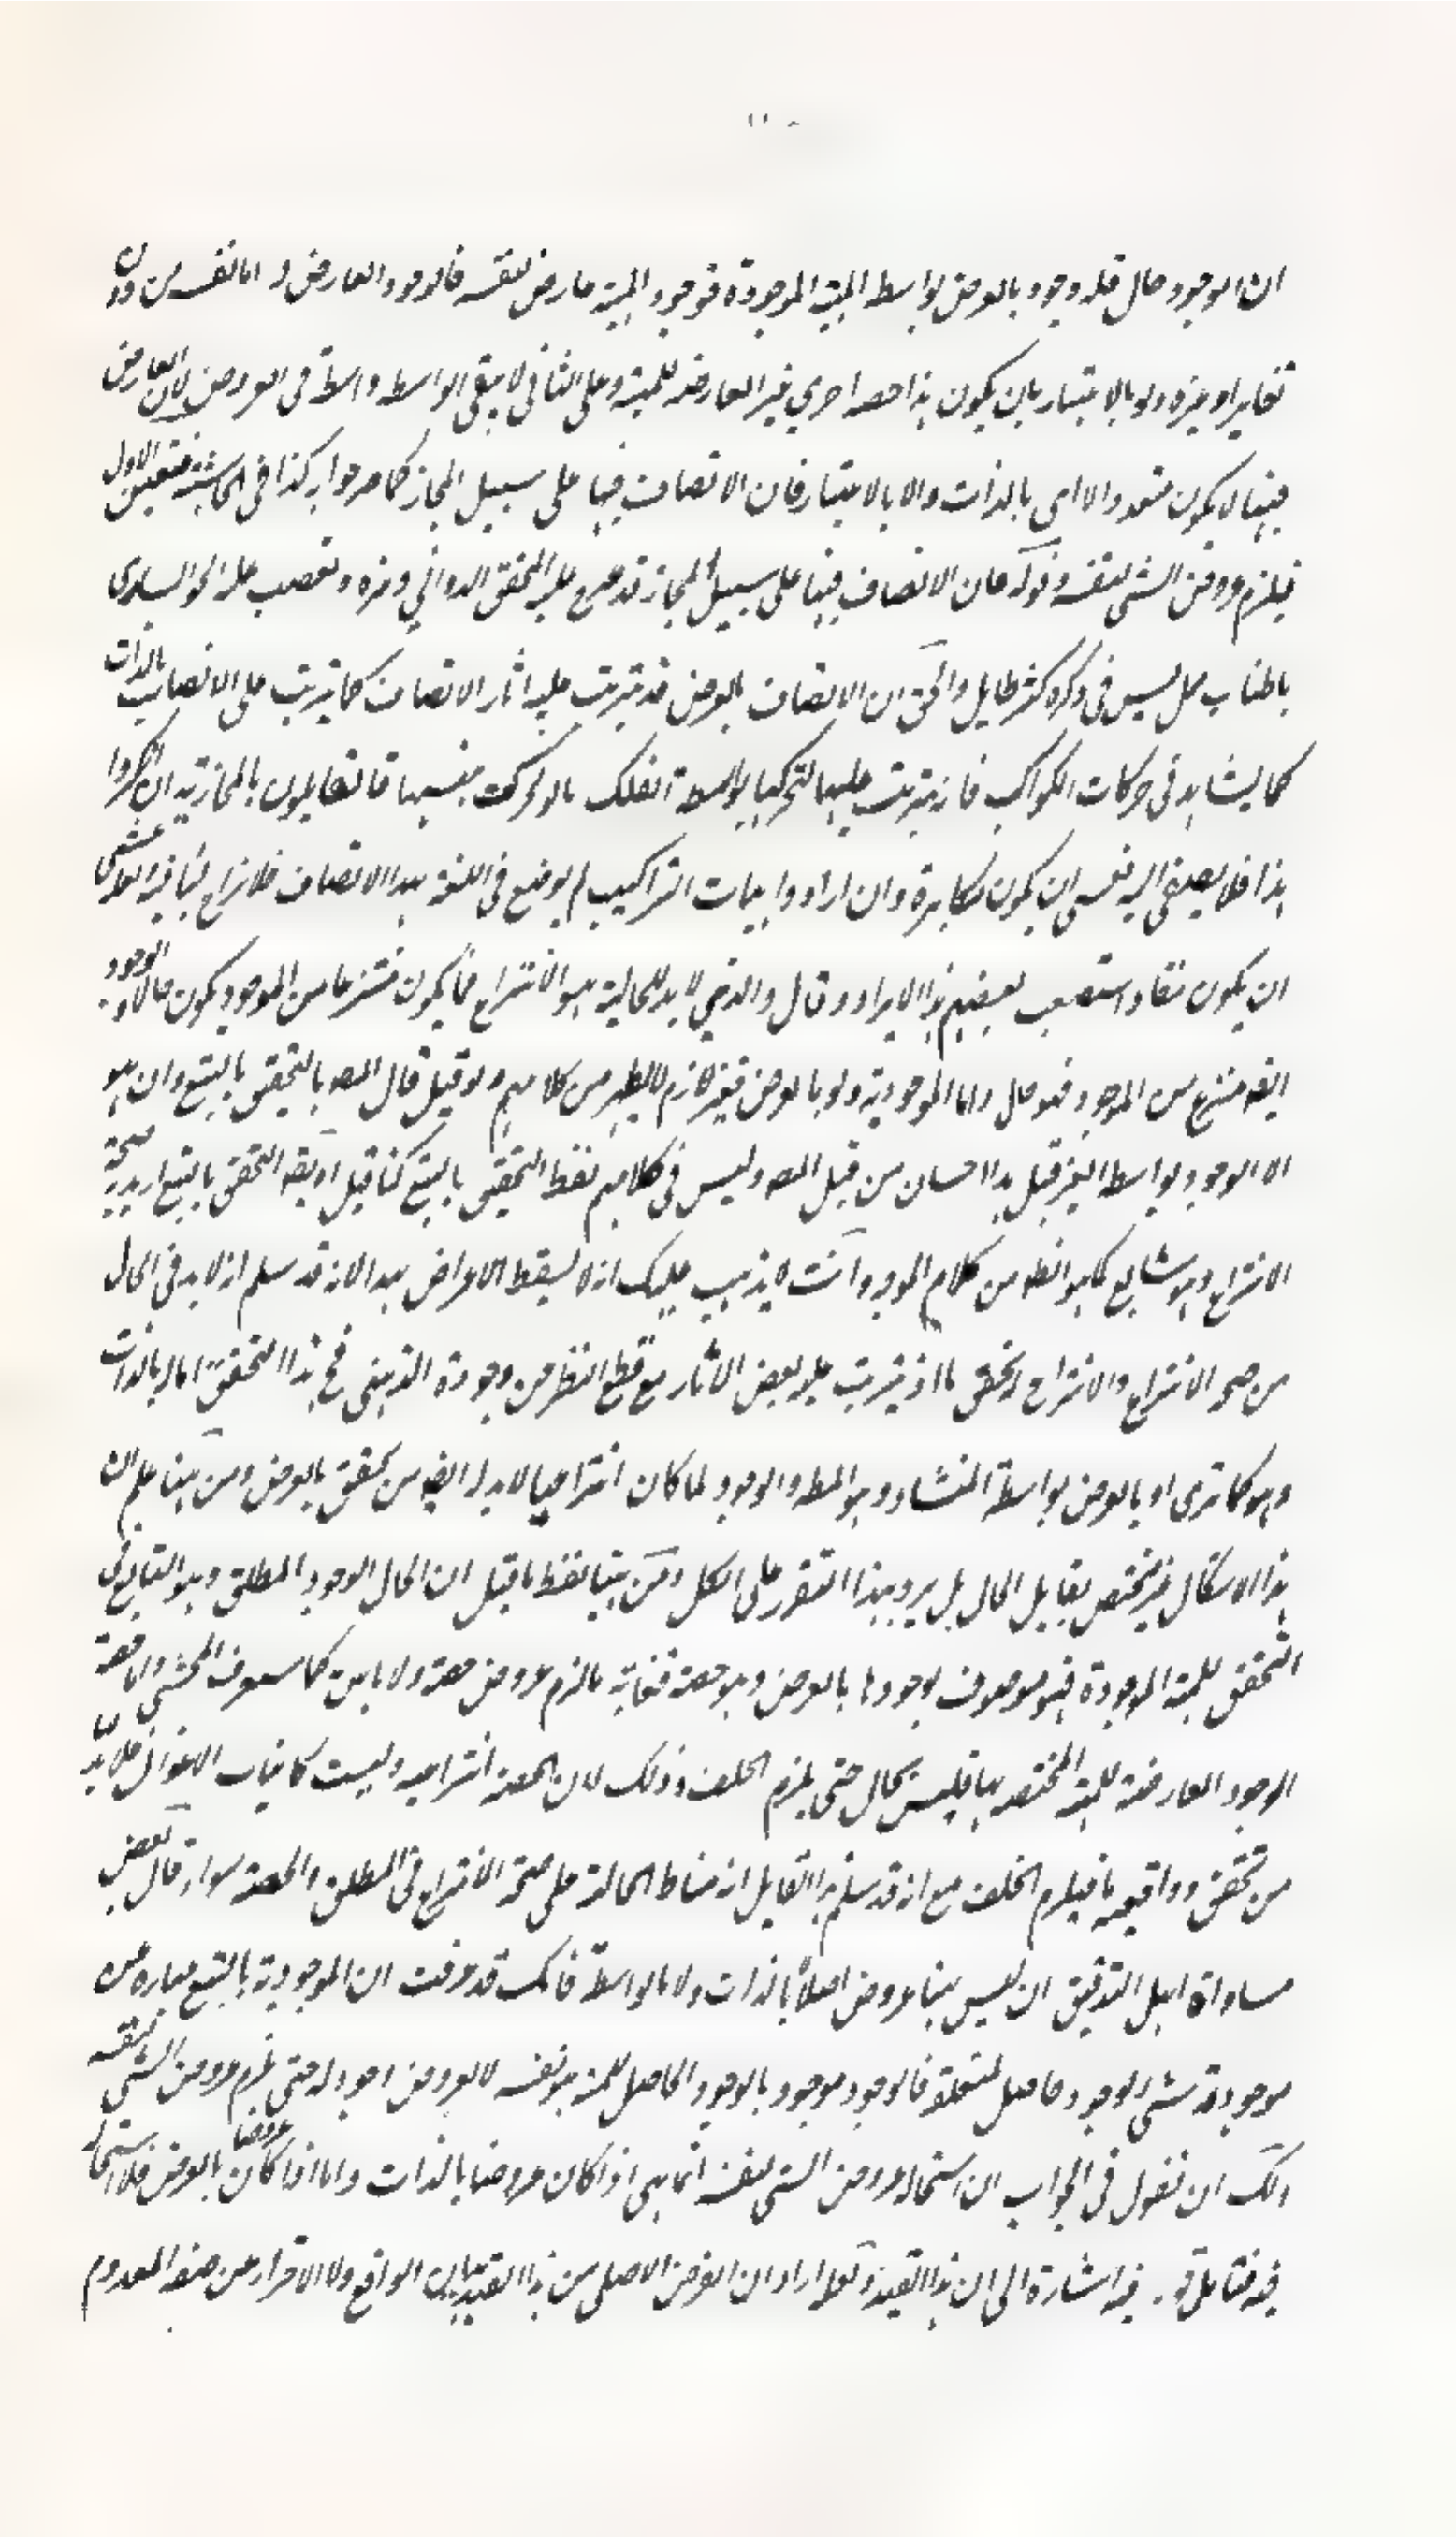 ان الوجود حال فله وجود بالعرض بواسطة المهية الموجودة فوجود المهية عارض لنفسه فالوجود العارض اما نفسه من دون
تغاير او غيره ولو بالاعتبار بان يكون هذا حصة اخرى غير العارضة للمهية وعلى الثاني لا يبقى الواسطة واسطة في العروض لان العارض
فيها لا يكون متعددا لا اى بالذات ولا بالاعتبار فان الاتصاف فيها على سبيل المجاز كما صرحوا به كذا في الحاشية فتعين الاول
فيلزم عروض الشى لنفسه وقوله فان الاتصاف فيها على سبيل المجاز قد صرح عليه المحقق الدواني وغيره وتعصب عليه الخوانسارى
باطناب ممل ليس في ذكره كثير طايل والحق ان الاتصاف بالعرض قد يترتب عليه اثار الاتصاف كما يترتب على الاتصاف بالذات
كما يشاهد في حركات الكواكب فانه يترتب عليها لتحركها بواسطة الفلك ما لو تحركت بنفسها فالقايلون بالمجازية ان انكروا
هذا فلا يصغى اليه فعسى ان يكون مكابرة وان ارادوا ان هيات التراكيب لم يوضع في اللغة لهذا الاتصاف فلا نزاع لنا فيه ولعله عسى
ان يكون حقا واستصعب بعضهم هذا الايراد وقال والذي لا بد للحالية هو الانتزاع فما يكون منتزعا من الموجود يكون حالا والوجود
ايضه منتزع من الموجود فهو حال واما الموجودية ولو بالعرض فغير لازم لا يظهر من كلامهم ولو قيل قال المصه بالتحقق بالتبع وان هو
الا الوجود بواسطة الغير قيل هذا احسان من قبل المصه وليس في كلامهم لفظ التحقق بالتبع كما قيل او يقه التحقق بالتبع اريد به صحة
الانتزاع وهو شايع كما هو الظه من كلام المورد وانت لا يذهب عليك انه لا يسقط الاعتراض بهذا لانه قد سلم انه لا بد في الحال
من صحة الانتزاع والانتزاع تحقق ما اذ يترتب عليه بعض الآثار مع قطع النظر عن وجوده الذهني فح هذا التحقق اما له بالذات
وهو كما ترى او بالعرض بواسطة المنشاء وهو المط والوجود لما كان انتزاعيا لا بد له ايضه من تحقق بالعرض ومن ههنا علم ان
هذا الاشكال غير مختص بقايل الحال بل يرد بهذا التقرير على الكل ومن ههنا سقط ما قيل ان الحال الوجود المطلق وهو التابع في
التحقق للمهية الموجودة فهو موصوف بوجودها بالعرض وهو حصة فغاية مالزم عروض حصة ولا باس كما سيعرف المحشى واما حصة
الوجود العارضة للمهية المختصة بها فليس بحال حتى يلزم الخلف وذلك لان الحصة انتزاعية وليست كانياب الاغوال فلا بد
من تحقق وواقعية ما فيلزم الخلف مع انه قد سلم هذا القايل ان مناط الحالية على صحة الانتزاع في المطلق والحصة سواء قال بعض
مساواة اهل التدقيق ان ليس ههنا عروض اصلا بالذات ولا بالواسطة فانك قد عرفت ان الموجودية بالتبع عبارة عن
موجودية شى بالوجود حاصل لمتعلقه فالوجود موجود بالوجود الحاصل للمهية هو نفسه لا بعروض اخر وجود له حتى يلزم عروض الشى لنفسه
ولك ان تقول في الجواب ان استحالة عروض الشى لنفسه انما هى اذا كان عروضا بالذات واما اذا كان عروضا بالعرض فلا استحالة
فيه فتامل قوله فيه اشارة الى ان هذا القيد لعله اراد ان الغرض الاصلي من هذا القيد بيان الواقع ولا الاحتراز عن صفة المعدوم